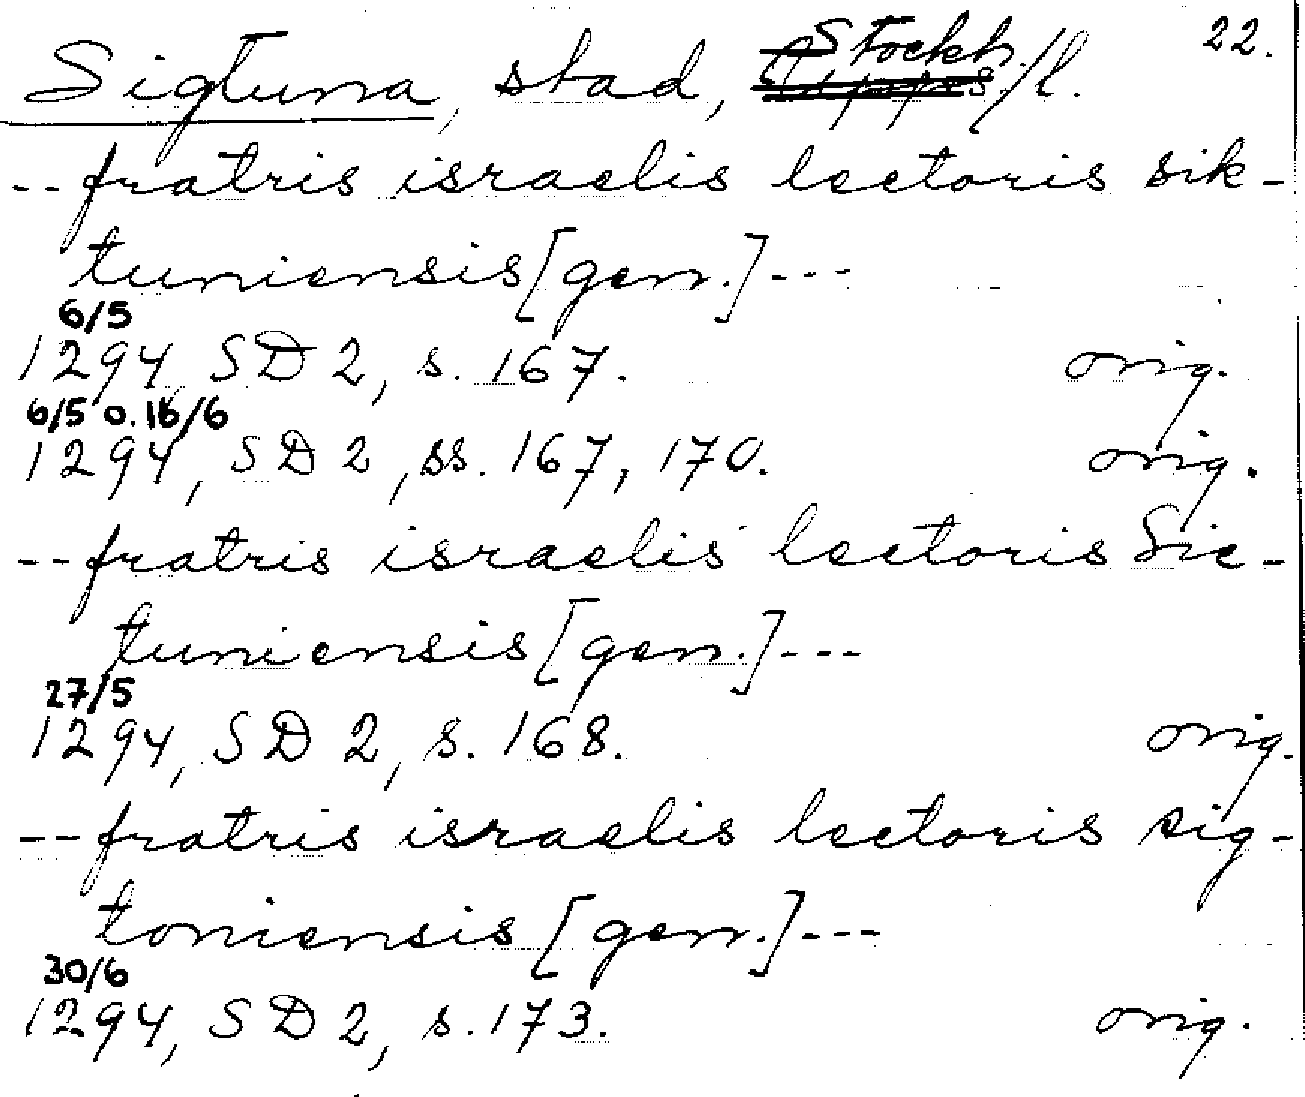 Sigtuna, stad, Stockh. /l. 22.
-- fratris israelis lectoris sik-
tuniensis [gen.] ---
6/5
1294, SD 2, s. 167. orig.
6/5 o. 16/6
1294, SD 2, ss. 167, 170. orig.
-- fratris israelis lectoris Sic-
tuniensis [gen.] ---
27/5
1294, SD 2, s. 168. orig.
-- fratris israelis lectoris sig-
toniensis [gen.] ---
30/6
1294, SD 2, s. 173. orig.